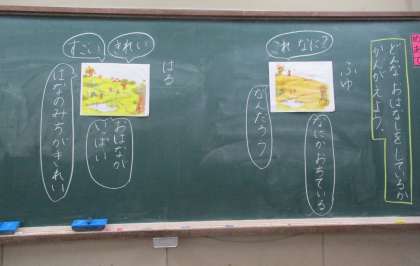 めあて
どんな おはなしを しているか
かんがえよう。
ふゆ
これ なに?
なにかおちている
なんだろう
はる
きれい
すごい
おはなが
いっぱい
はなのみちがきれい